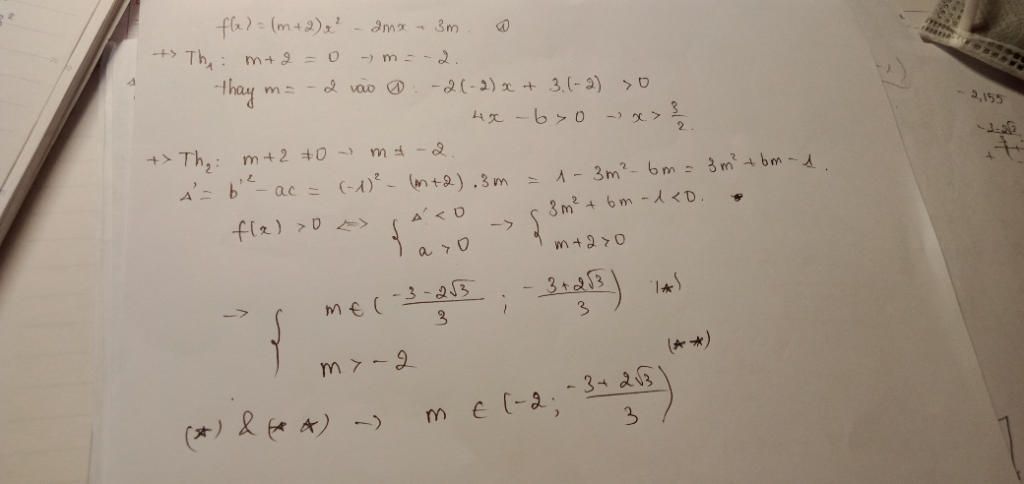 f(x) = (m+2)x² - 2mx + 3m. ①
+> Th₁: m+2 = 0 → m = -2.
thay m = -2 vào ①: -2(-2)x + 3.(-2) > 0
4x - 6 > 0 → x > 3/2.
+> Th₂: m+2 ≠ 0 → m ≠ -2.
Δ' = b'² - ac = (-1)² - (m+2).3m = 1 - 3m² - 6m = 3m² + 6m - 1.
f(x) > 0 <=> { Δ' < 0 a > 0 → { 3m² + 6m - 1 < 0. m+2 > 0
→ { m ∈ (-3-2√3/3 ; -3+2√3/3) (*)
m > -2 (**)
(*) & (**) → m ∈ (-2; -3+2√3/3)
-1)
- 2,155